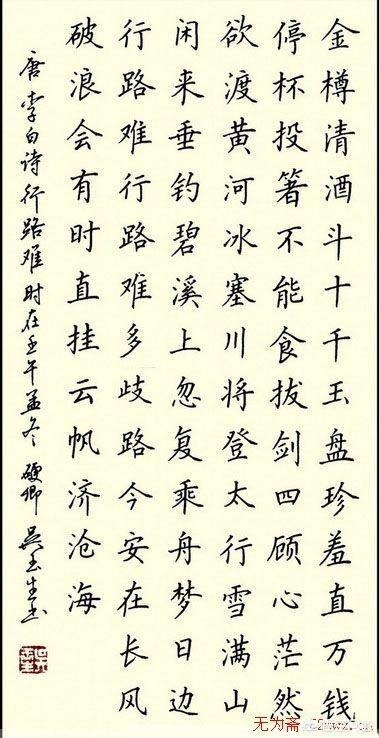 金樽清酒斗十千玉盘珍羞直万钱
停杯投箸不能食拔剑四顾心茫然
欲渡黄河冰塞川将登太行雪满山
闲来垂钓碧溪上忽复乘舟梦日边
行路难行路难多歧路今安在长风
破浪会有时直挂云帆济沧海
唐李白诗行路难时在壬午孟冬 吴玉生书
无为斋